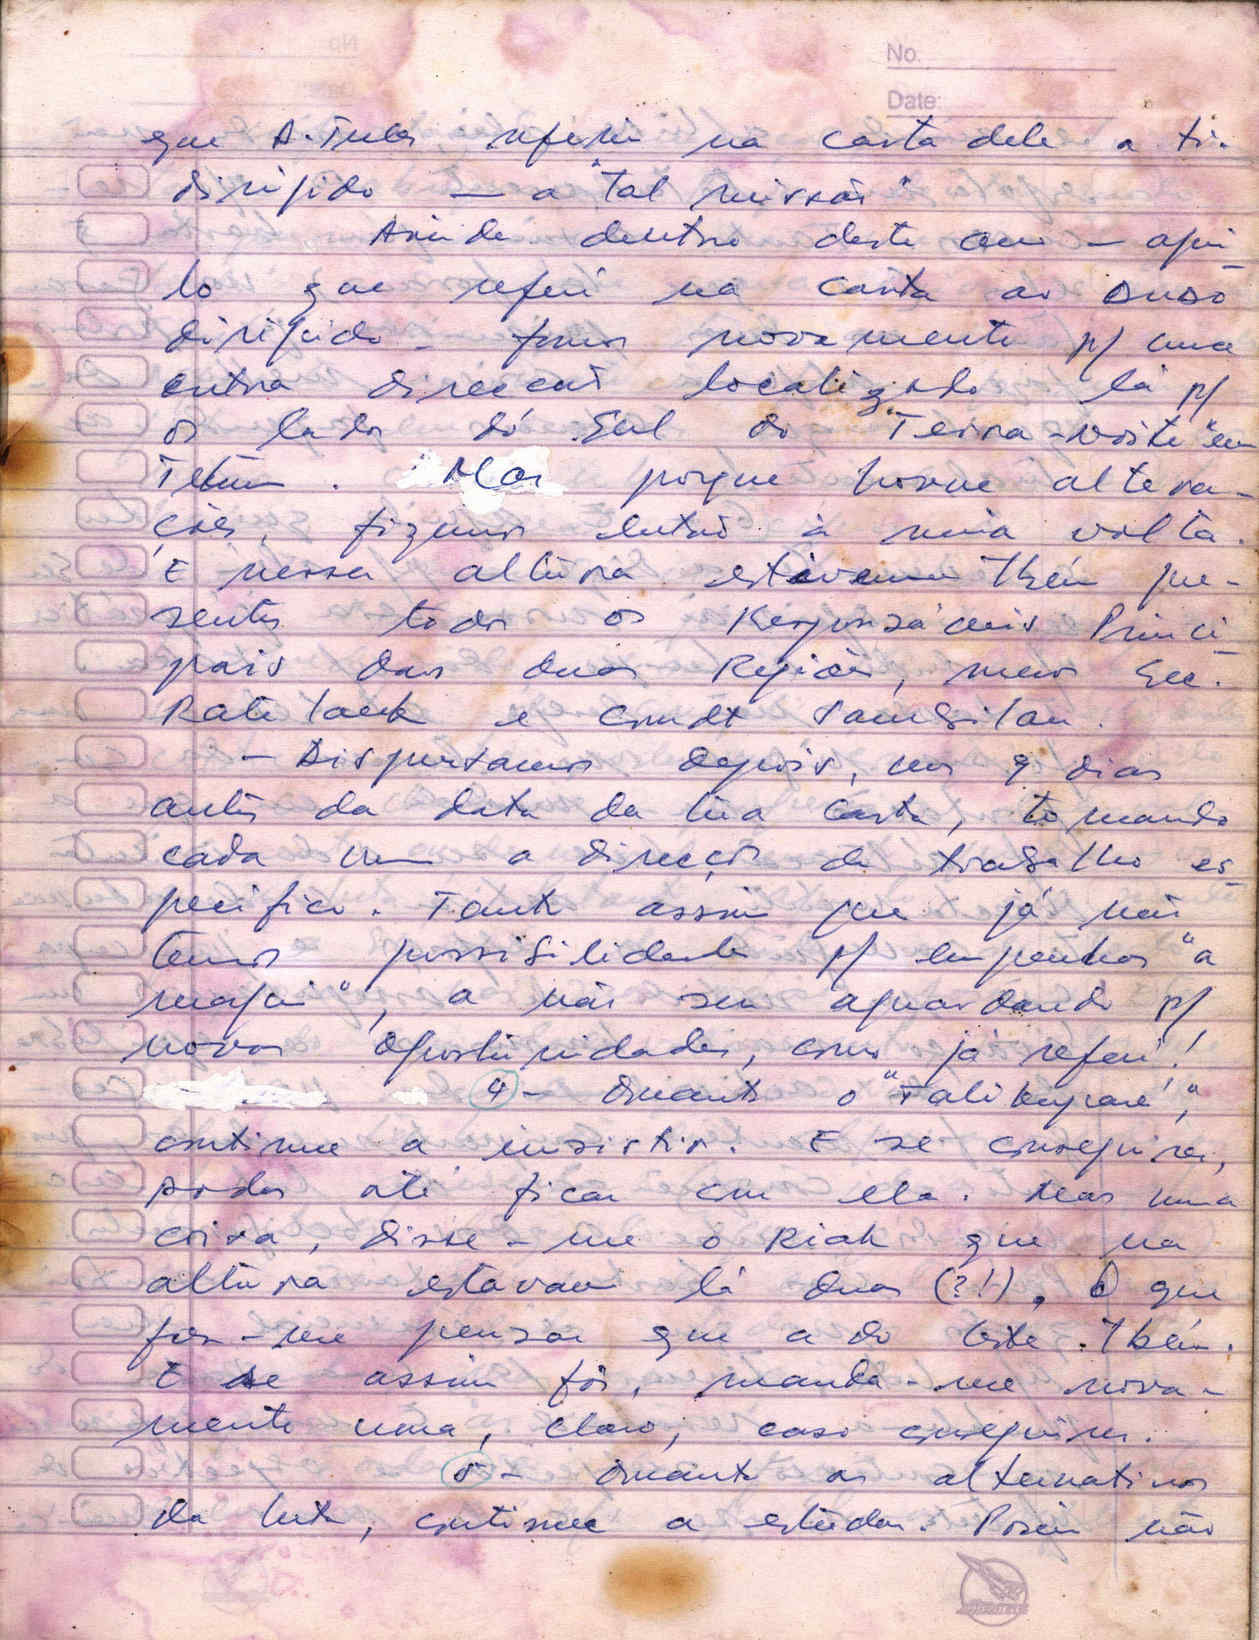 No.
Date:
que A. Tuler referiu na carta dele a ti
dirigido — a "tal missão"
Ainda dentro deste ano — aqui
lo que referi na carta ao OMSO
dirigido — fomos novamente p/ uma
outra direccão localizado lá p/
os lados dó Sul do "Terra-noite" em
Tetum. Mas porque houve altera-
ções, fizemos entrò à meia volta.
E nessa altura estávamos Tbém pre-
sentes todos os Responsáveis Princi-
pais das duas Regiões, menos Sec.
Rate laek e Cmdt
— Dispersamos depois, uns 9 dias
antes da data da tua carta, tomando
cada um a direcção do trabalho es-
pecifico. Tanto assim que já não
temos possibilidade p/ empenhos "a
magui", a não ser aguardando p/
novas oportunidades, como já referi!
4 - Quanto o
continue a insistir. E se conseguires,
podes até ficar com ela. Mas uma
coisa, disse-me o Riak que na
altura estavam lá duas (?!), O que
fez-me pensar que a do Leste Tbém.
E se assim fôr, manda-me nova-
mente uma, claro, caso conseguires.
5 - Quanto as alternativas
da luta, continue a estudar. Porém não